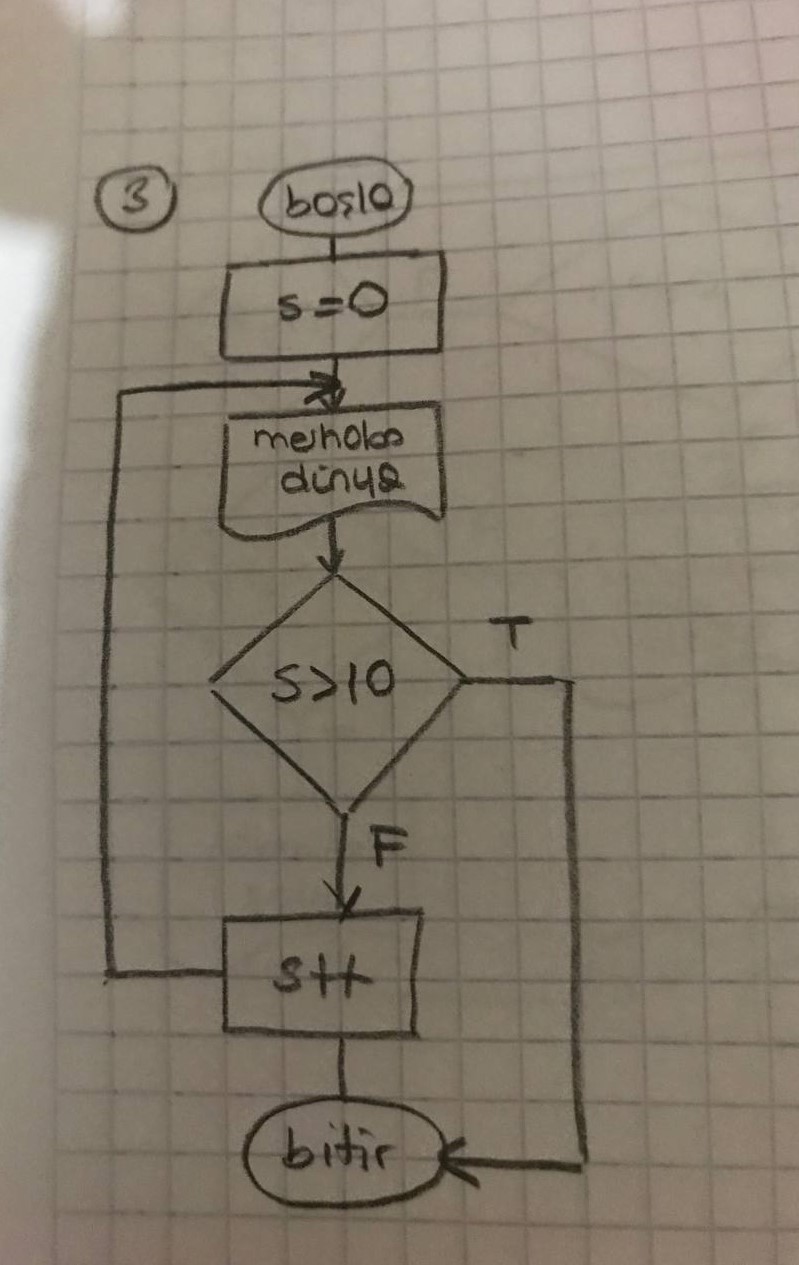 3
başla
s=0
merhaba
dünya
s>10
T
F
s++
bitir